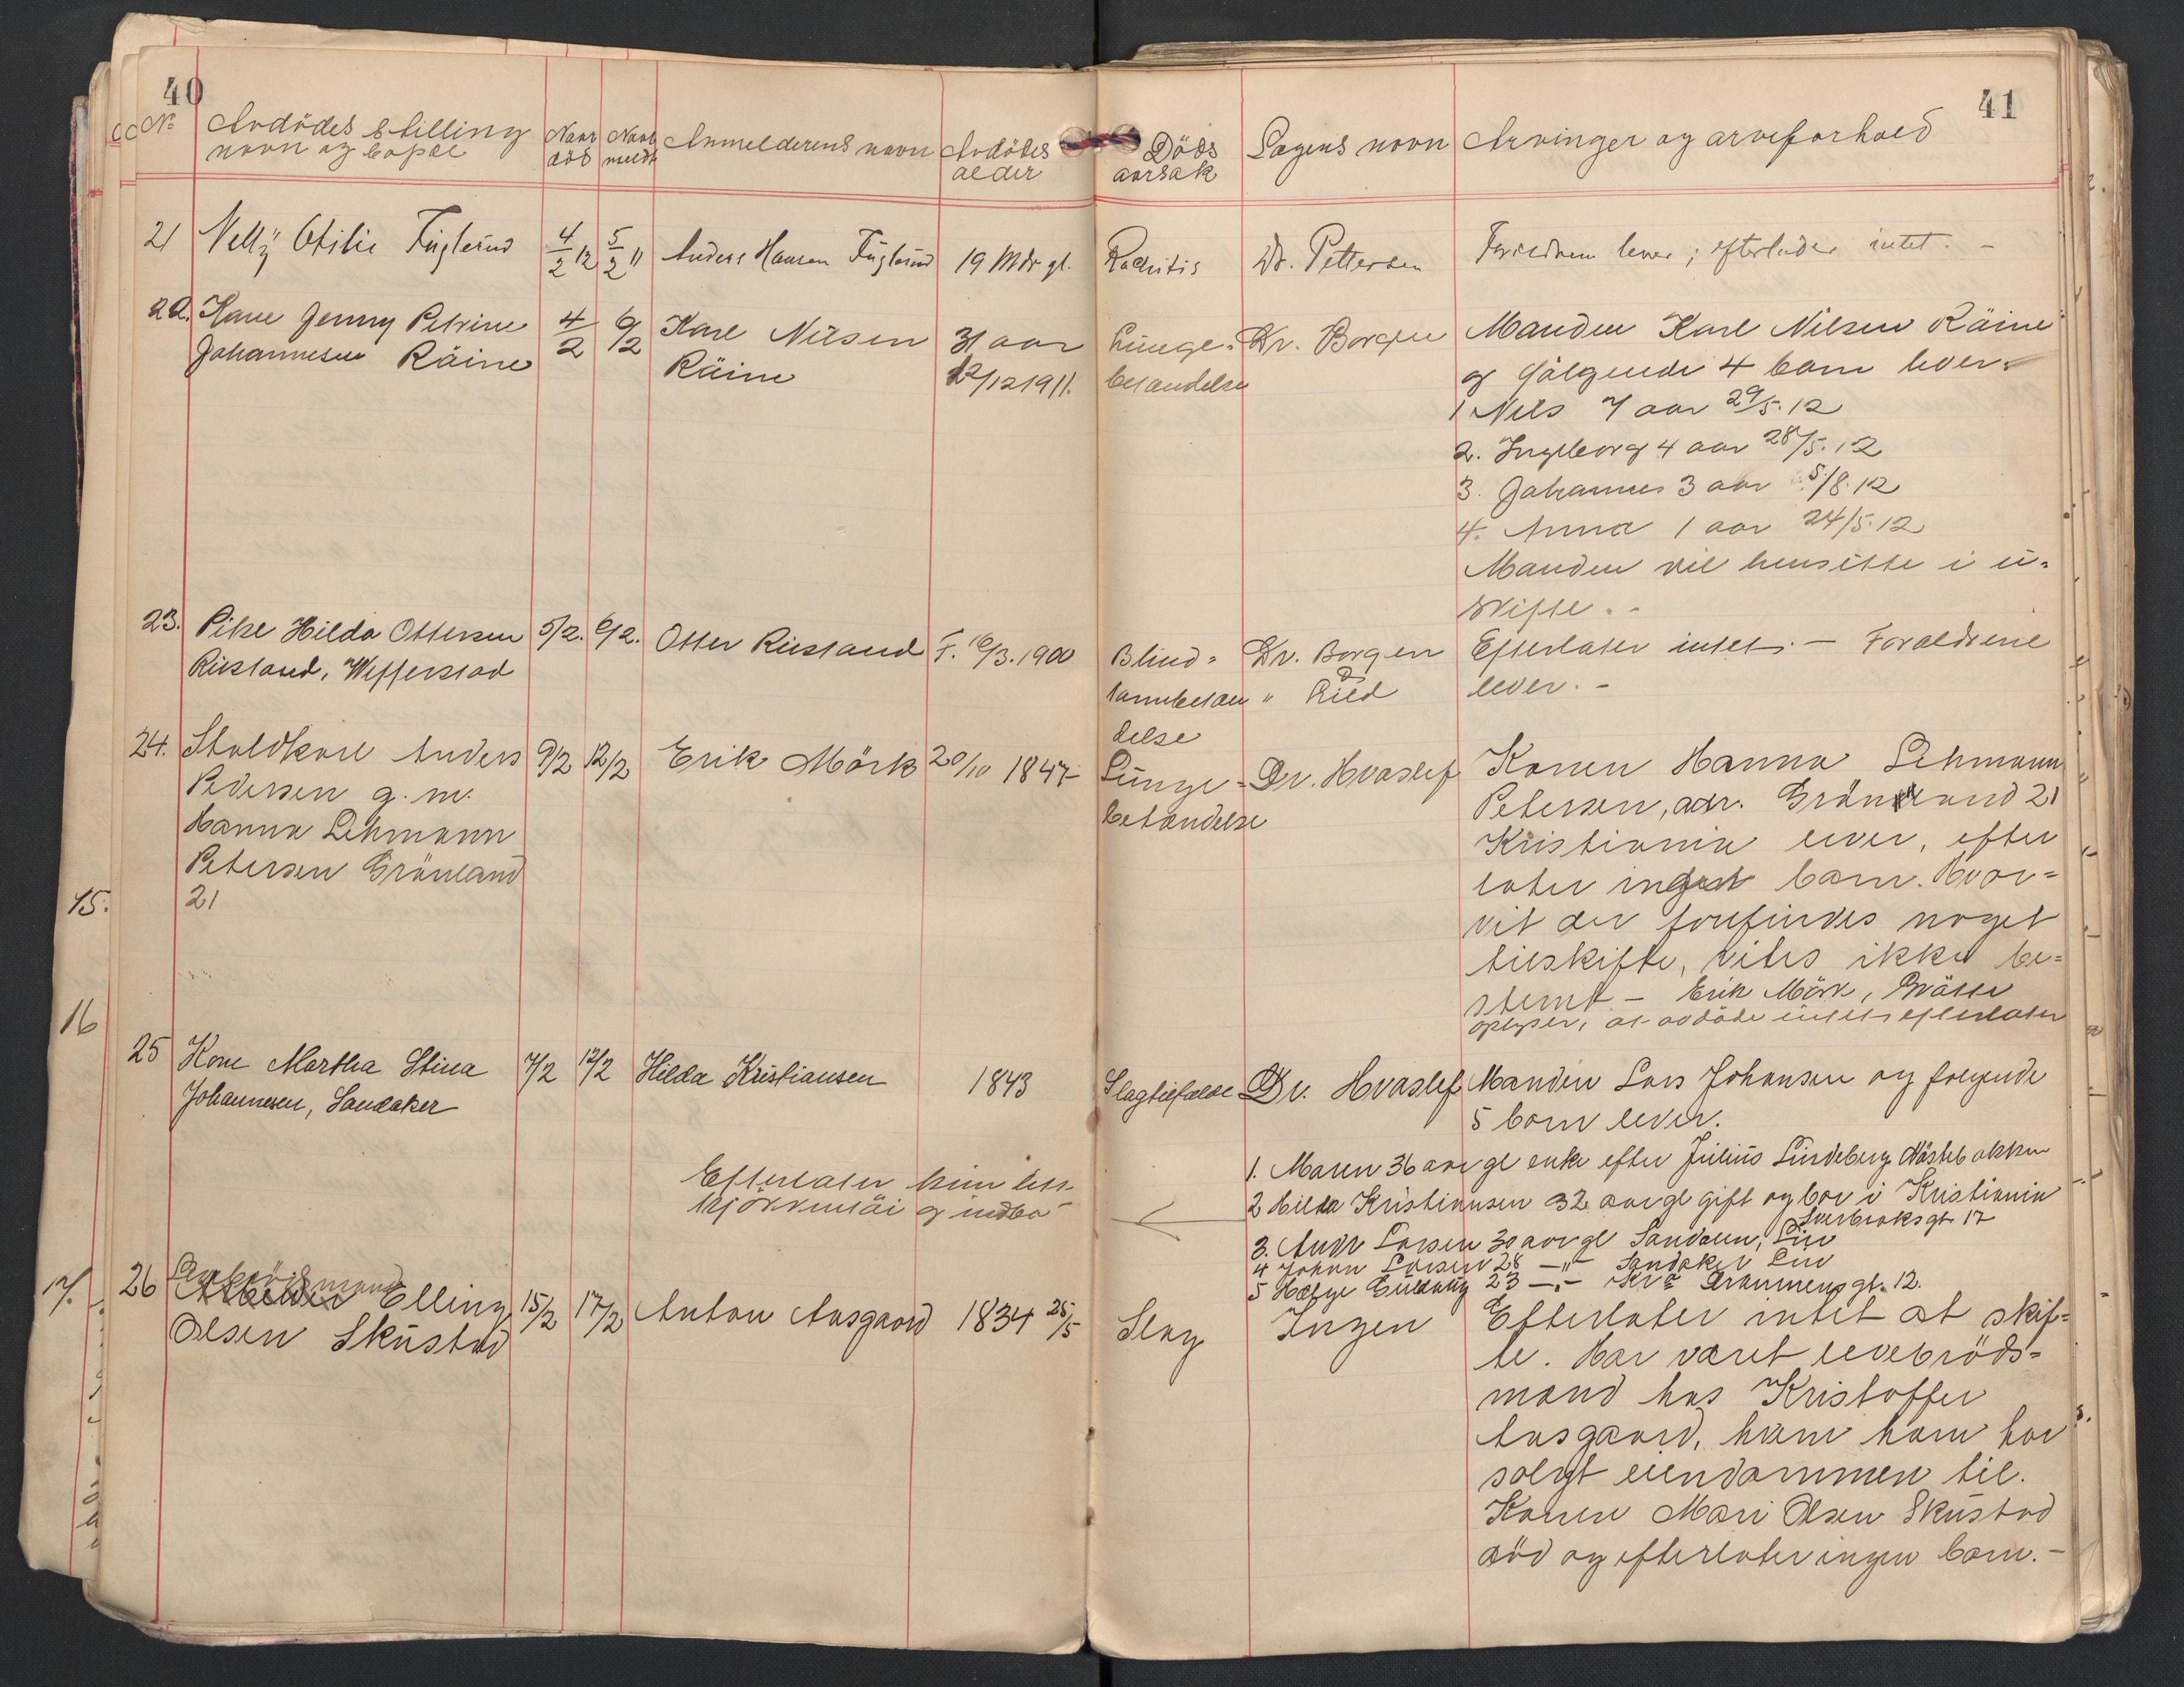 40
41
No Avdödes stilling
navn og bopæl
Naar
död
Naar
meldt
Anmelderens navn
Avdödes
alder
Döds
aarsak
Lægens navn
Arvinger og arveforhold
21 Nelly Otilie Fuglerud 4/2 12 5/2 11 Anders Hansen Fuglerud 19 Mdr gl. Rachitis Dr. Pettersen Forældrene lever; efterlader intet. -
22. Kone Jenny Petrine
Johannesen Räine
4/2 6/2
Karl Nilsen
Räine
31 aar
12/12 1911.
Lunge-
betændelse
Dr. Borgen
Manden Karl Nilsen Räine
og fölgende 4 barn lever.
1 Nils 7 aar 29/5.12
2. Ingeborg 4 aar 28/5.12
3. Johannes 3 aar 5/8.12
4. Anna 1 aar 24/5.12
Manden vil hensitte i u-
skifte.-
23. Pike Hilda Ottersen
Rustand, Wefferstad
5/2. 6/2.
Otter Rustand F. 16/3.1900
Blind-
tarmbetæn
delse
Dr. Borgen
" Rud
Efterlater intet. - Forældrene
lever.-
24. Staldkarl Anders
Pedersen g. m.
Hanna Lehmann
Petersen Grönland
21
9/2 12/2 Erik Mörk 20/10 1847
Lunge-
betændelse
Dr. Hvaslef
Konen Hanna Lehmann
Petersen, adr. Grönland 21
Kristiania lever, efter
later inget barn. Hvor-
vit der forefindes noget
tilskifte, vites ikke be-
stemt - Erik Mörk,
oplyser, at avdöde intet efterlater
25 Kone Martha Stina
Johannesen, Sandaker
7/2 12/2 Hilda Kristiansen 1843 Slagtilfælde Dr. Hvaslef
Manden Lars Johansen og følgende
5 barn lever.
1. Maren 36 aar gl enke efter Julius Lindeberg Nästebakken
2 Hilda Kristiansen 32 aar gl gift og bor i Kristiania
gt. 17
3. Andr Larsen 30 aar gl Sandaker, Lier
4 Johan Larsen 28 -"- Sandaker Lier
5 Helge 23 -"- Kra Drammensgt. 12.
Efterlater kun litt
og indbo
26 Arbeider Elling
Olsen Skustad
15/2 17/2 Anton Aasgaard 1834 25/5
Slag Ingen
Efterlater intet at skif-
te. Har været levebröds-
mand hos Kristoffer
Aasgaard, hvem ham har
solgt eiendommen til.
Konen Mari Olsen Skustad
död og efterlater ingen barn.-
15.
16
17.